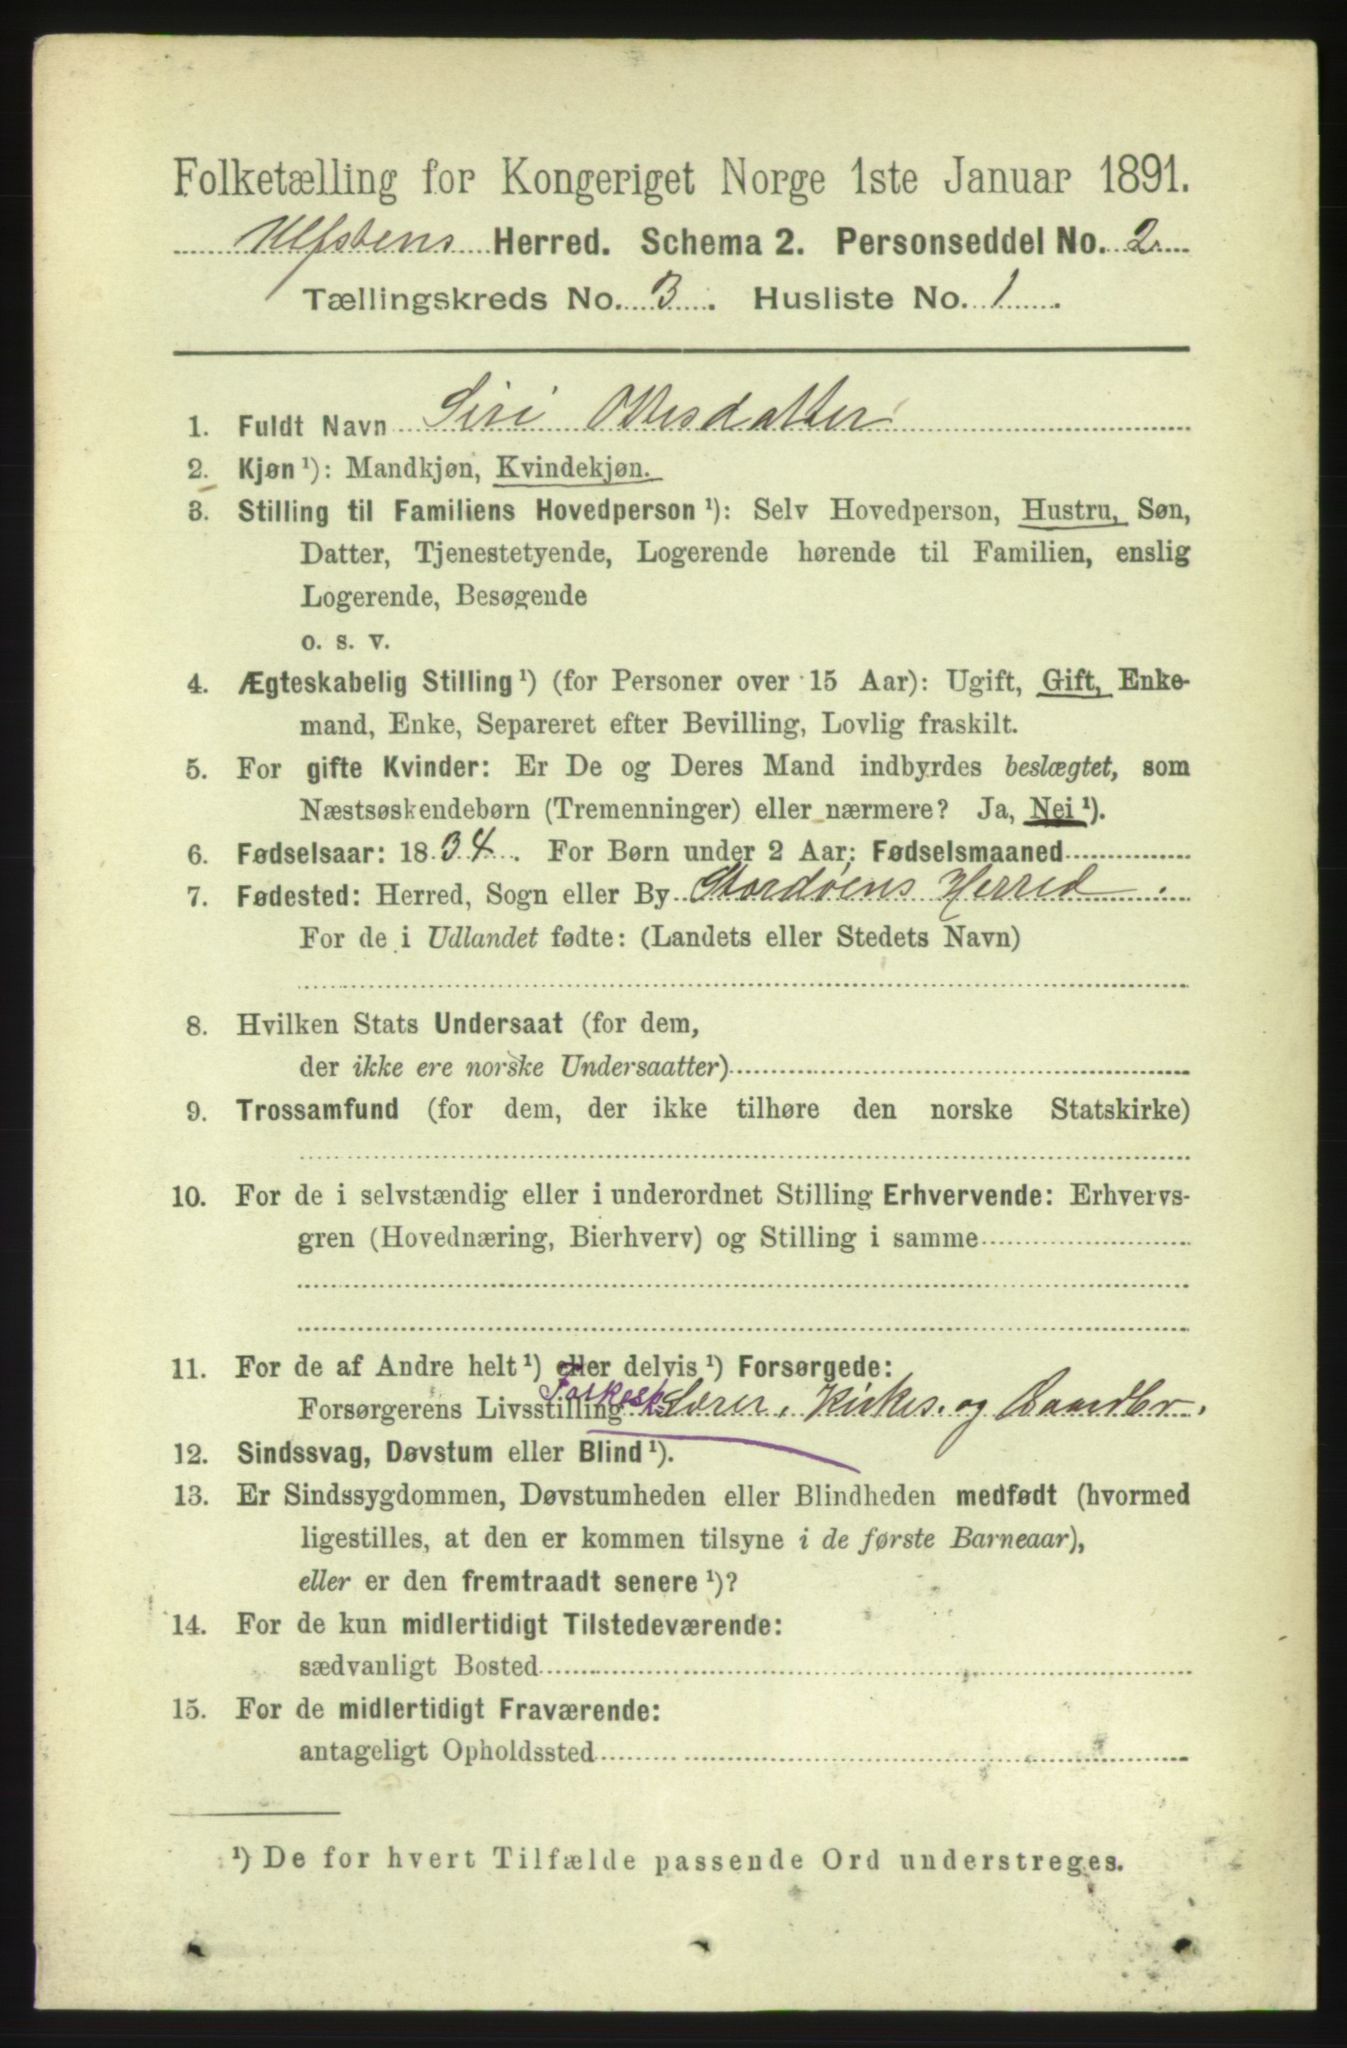 Folketælling for Kongeriget Norge 1ste Januar 1891.
Ulfstens Herred. Schema 2. Personseddel No. 2
Tællingskreds No. 3. Husliste No. 1.
1. Fuldt Navn Siri Olesdatter
2. Kjøn ¹): Mandkjøn, Kvindekjøn.
3. Stilling til Familiens Hovedperson ¹): Selv Hovedperson, Hustru, Søn,
Datter, Tjenestetyende, Logerende hørende til Familien, enslig
Logerende, Besøgende
o. s. v.
4. Ægteskabelig Stilling ¹) (for Personer over 15 Aar): Ugift, Gift, Enke-
mand, Enke, Separeret efter Bevilling, Lovlig fraskilt.
5. For gifte Kvinder: Er De og Deres Mand indbyrdes beslægtet, som
Næstsøskendebørn (Tremenninger) eller nærmere? Ja, Nei ¹).
6. Fødselsaar: 1834. For Børn under 2 Aar: Fødselsmaaned
7. Fødested: Herred, Sogn eller By Stordøens Herred.
For de i Udlandet fødte: (Landets eller Stedets Navn)
8. Hvilken Stats Undersaat (for dem,
der ikke ere norske Undersaatter)
9. Trossamfund (for dem, der ikke tilhøre den norske Statskirke)
10. For de i selvstændig eller i underordnet Stilling Erhvervende: Erhvervs-
gren (Hovednæring, Bierhverv) og Stilling i samme
11. For de af Andre helt ¹) eller delvis ¹) Forsørgede:
Forsørgerens Livsstilling Lærer, Kirkes. og Gaardbr.
12. Sindssvag, Døvstum eller Blind ¹).
13. Er Sindssygdommen, Døvstumheden eller Blindheden medfødt (hvormed
ligestilles, at den er kommen tilsyne i de første Barneaar),
eller er den fremtraadt senere ¹)?
14. For de kun midlertidigt Tilstedeværende:
sædvanligt Bosted
15. For de midlertidigt Fraværende:
antageligt Opholdssted
¹) De for hvert Tilfælde passende Ord understreges.